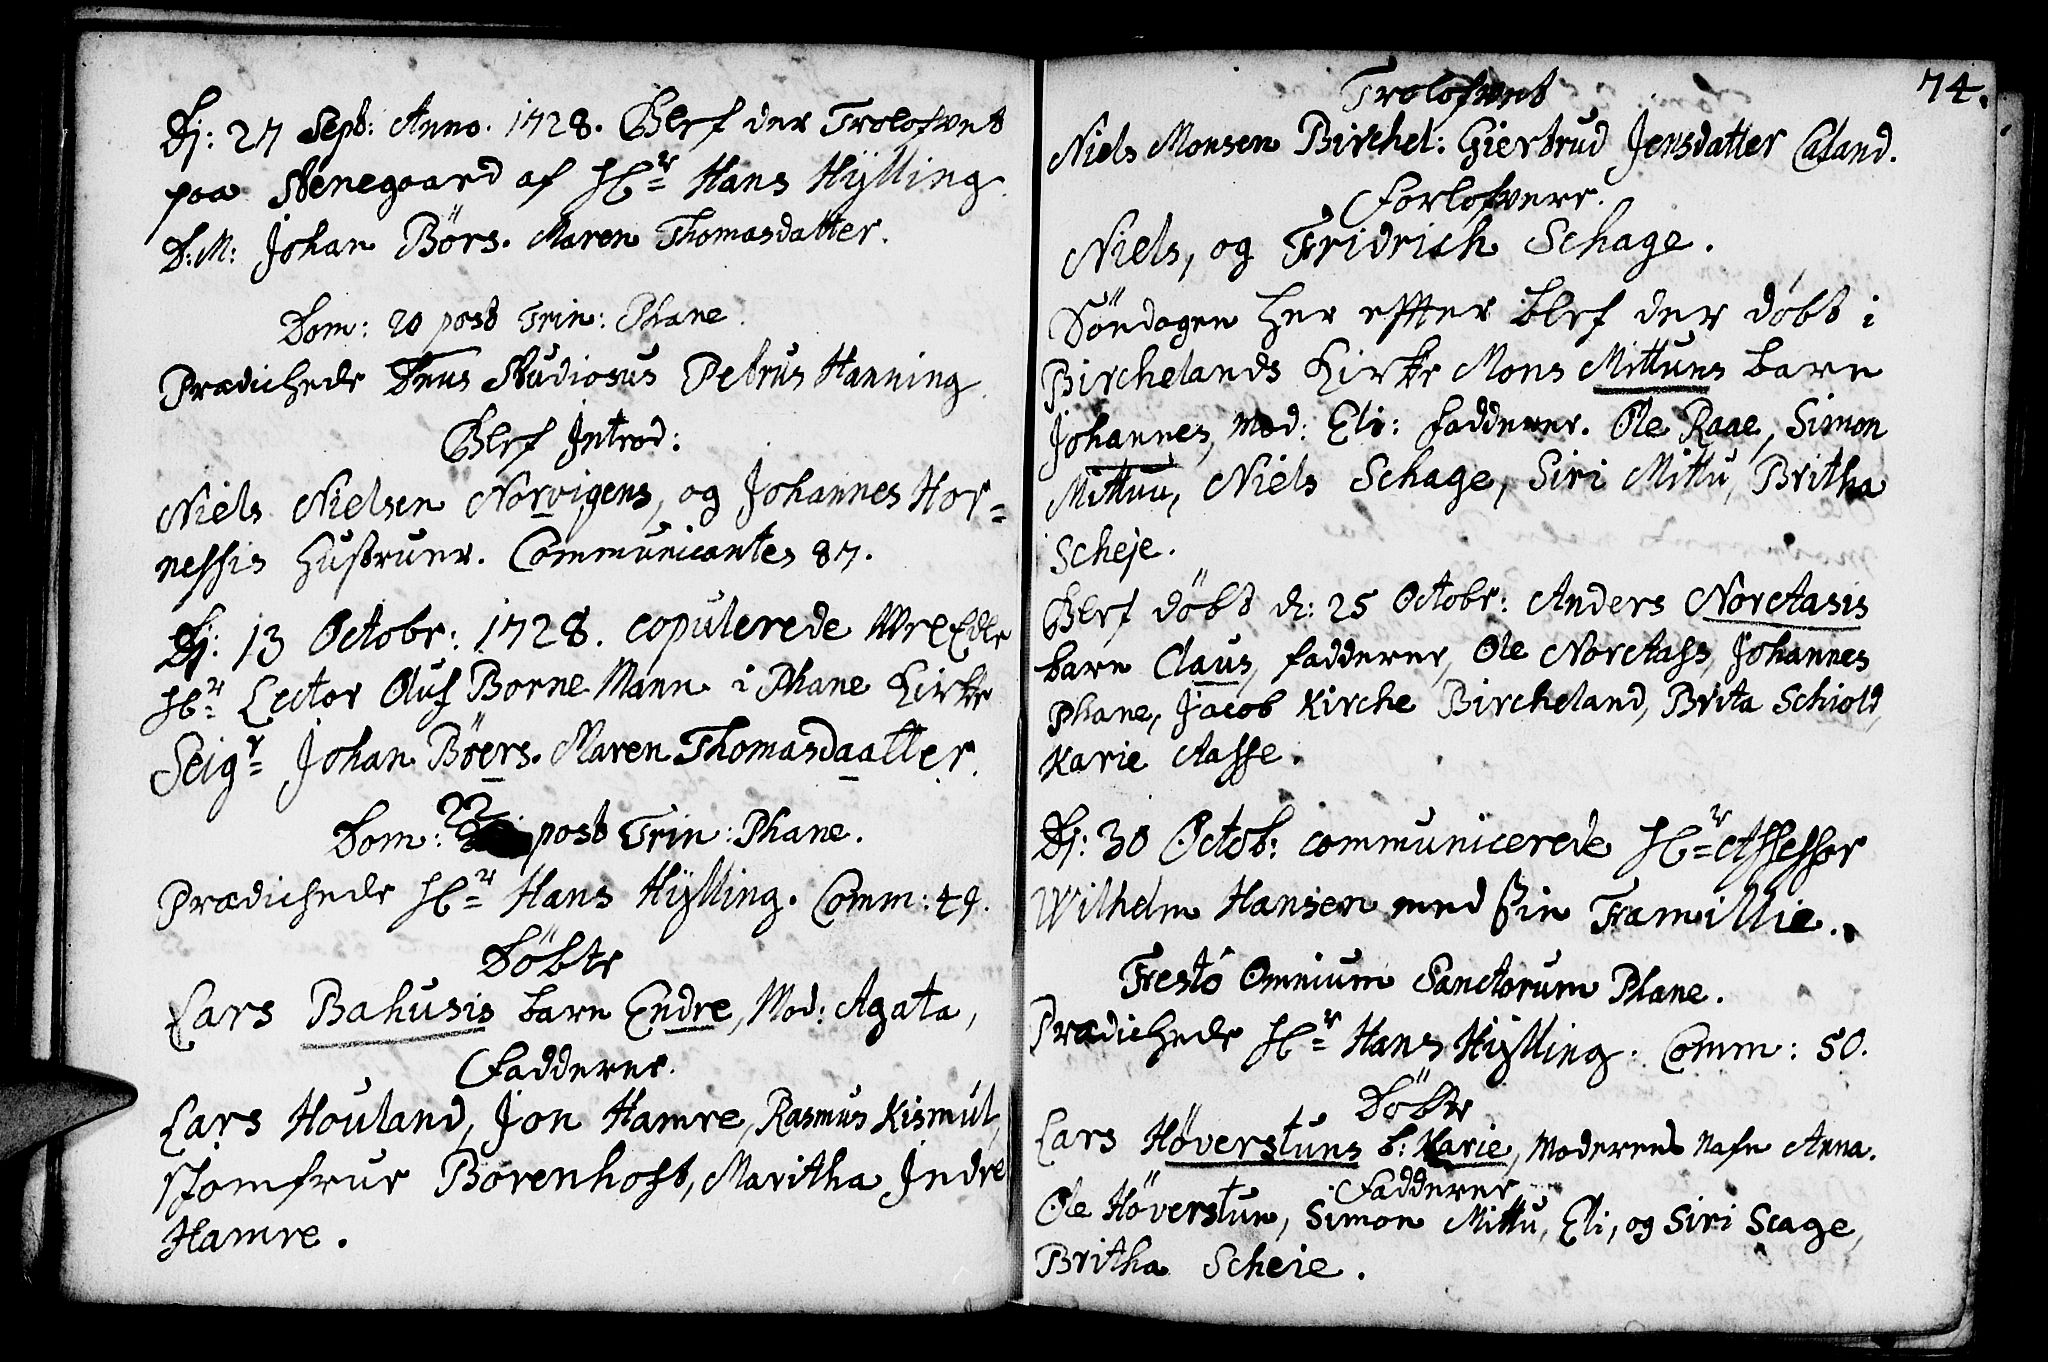 Dj: 27 Sept: Anno. 1728. Blef der Trolofvet
paa Stenegaard af Hr= Hans Hÿlling
D.M: Johan Börs. Maren Thomasdatter.
Dom: 20 post Trin: Phane.
Prædichede Dnus Studiosus Petrus Hanning
Blef Introd:
Niels Nielsen Norvigens, og Johannes Hor=
neshis Hustruer. Communicantes 87.
Dj: 13 Octobr: 1728. copulerede Edle
Hr= Lector Oluf Borne Mann i Phane Kirke
Seigr= Johan Böers. Maren Thomasdaatter.
Dom: 22 post Trin: Phane.
Prædichede Hr= Hans Hÿlling. Comm: 49.
Döbte
Lars Bahusis barn Endre, Mod: Agata,
Fadderer.
Lars Houland, Jon Hamre, Rasmus Kismul,
Jomfrue Borenhoft, Maritha Indre
Hamre.
74.
Trolofvet
Niels Monsen Birchel: Giertrud Jensdatter Caland.
Forlofvere.
Niels, og Fridrich Schage.
Söndagen her effter blef der döbt i
Birchelands Kirke Mons Mittuns barn
Johannes, Mod: Eli: fadderer. Ole Raae, Simon
Mittuu, Niels Schage, Siri Mittu, Britha
Scheje.
Blef döbt d: 25 Octobr: Anders NorAasis
barn Claus, fadderer, Ole NorAass, Johannes
Phane, Jacob Kirche Bircheland, Brita Schiold,
Karie Aasse.
Dj: 30 Octob: communicerede Hr= Assessor
Wilhelm Hansen med sin Framillie.
Festo Omnium Sanctorum Phane.
Prædichede Hr= Hans Hÿlling. Comm: 50.
Döbte
Lars Höverstuns b: Karie, Moderens Nafn Anna.
Fadderer
Ole Höverstun, Simon Mittu, Eli, og Siri Scage,
Britha Scheie.